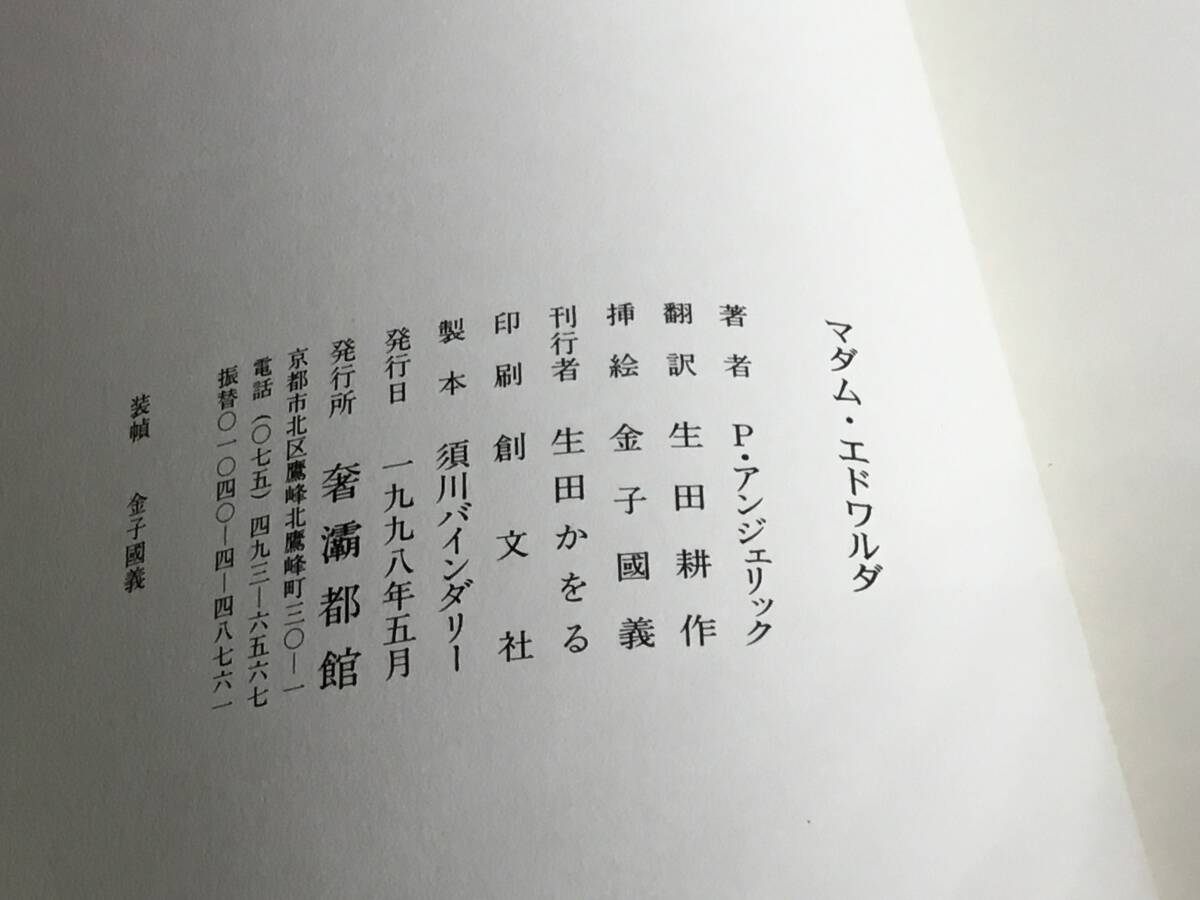 マダム・エドワルダ
著者 P・アンジェリック
翻訳 生田耕作
挿絵 金子國義
刊行者 生田かをる
印刷 創文社
製本 須川バインダリー
発行日 一九九八年五月
発行所 奢灞都館
京都市北区鷹峰北鷹峰町三〇―一
電話(〇七五)四九三―六五六七
振替〇一〇四〇―四―四八七六一
装幀 金子國義